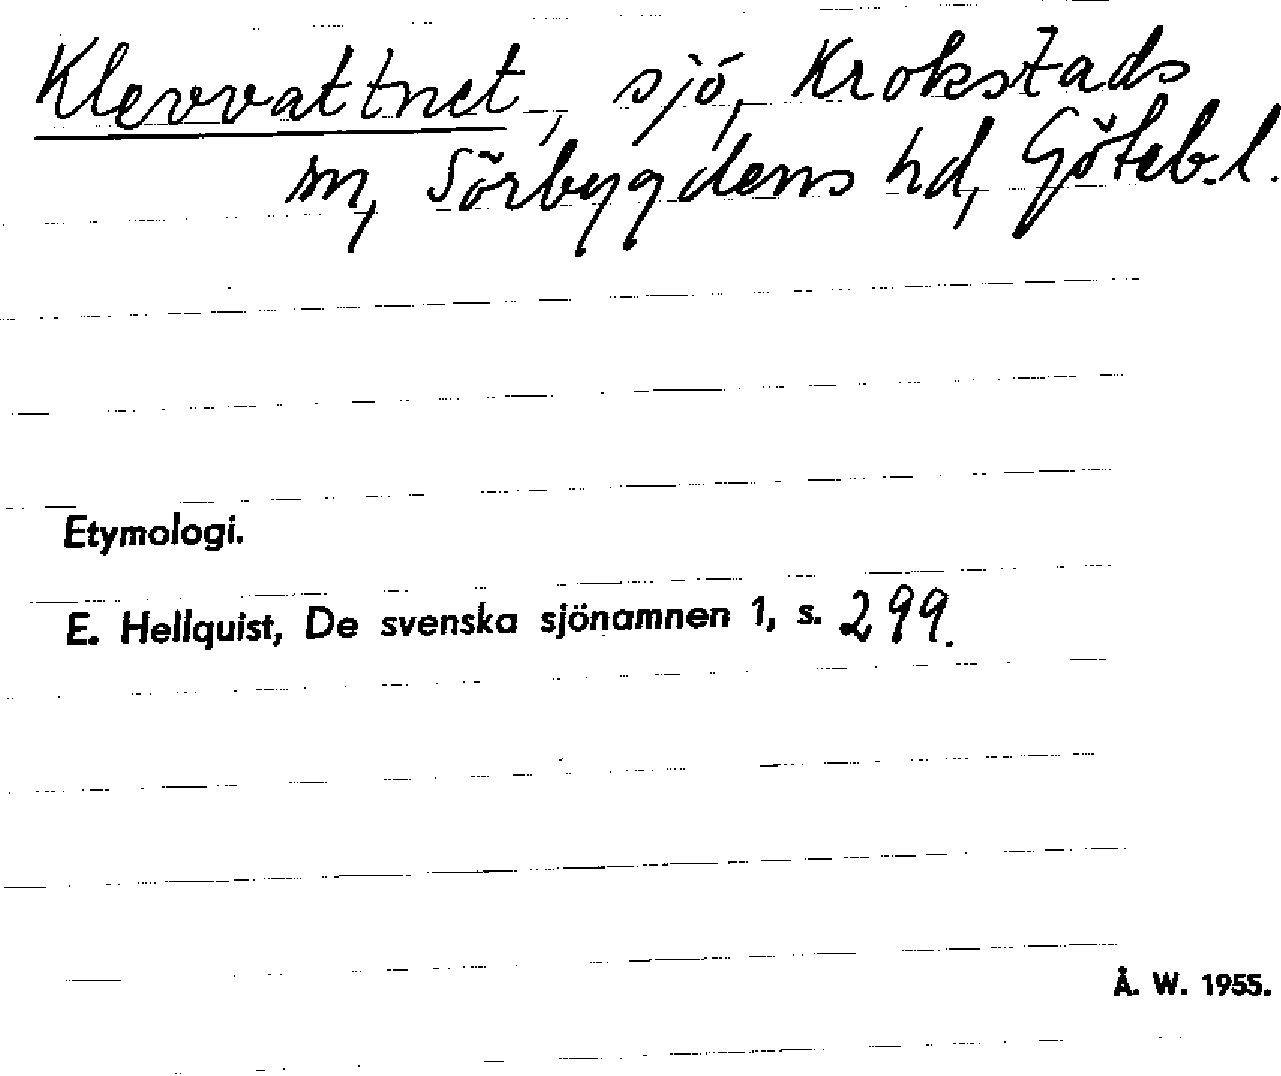 Klevvattnet, sjö, Krokstads
sn, Sörbygdens hd, Göteb.l.
Etymologi.
E. Hellquist, De svenska sjönamnen 1, s. 299.
Å. W. 1955.